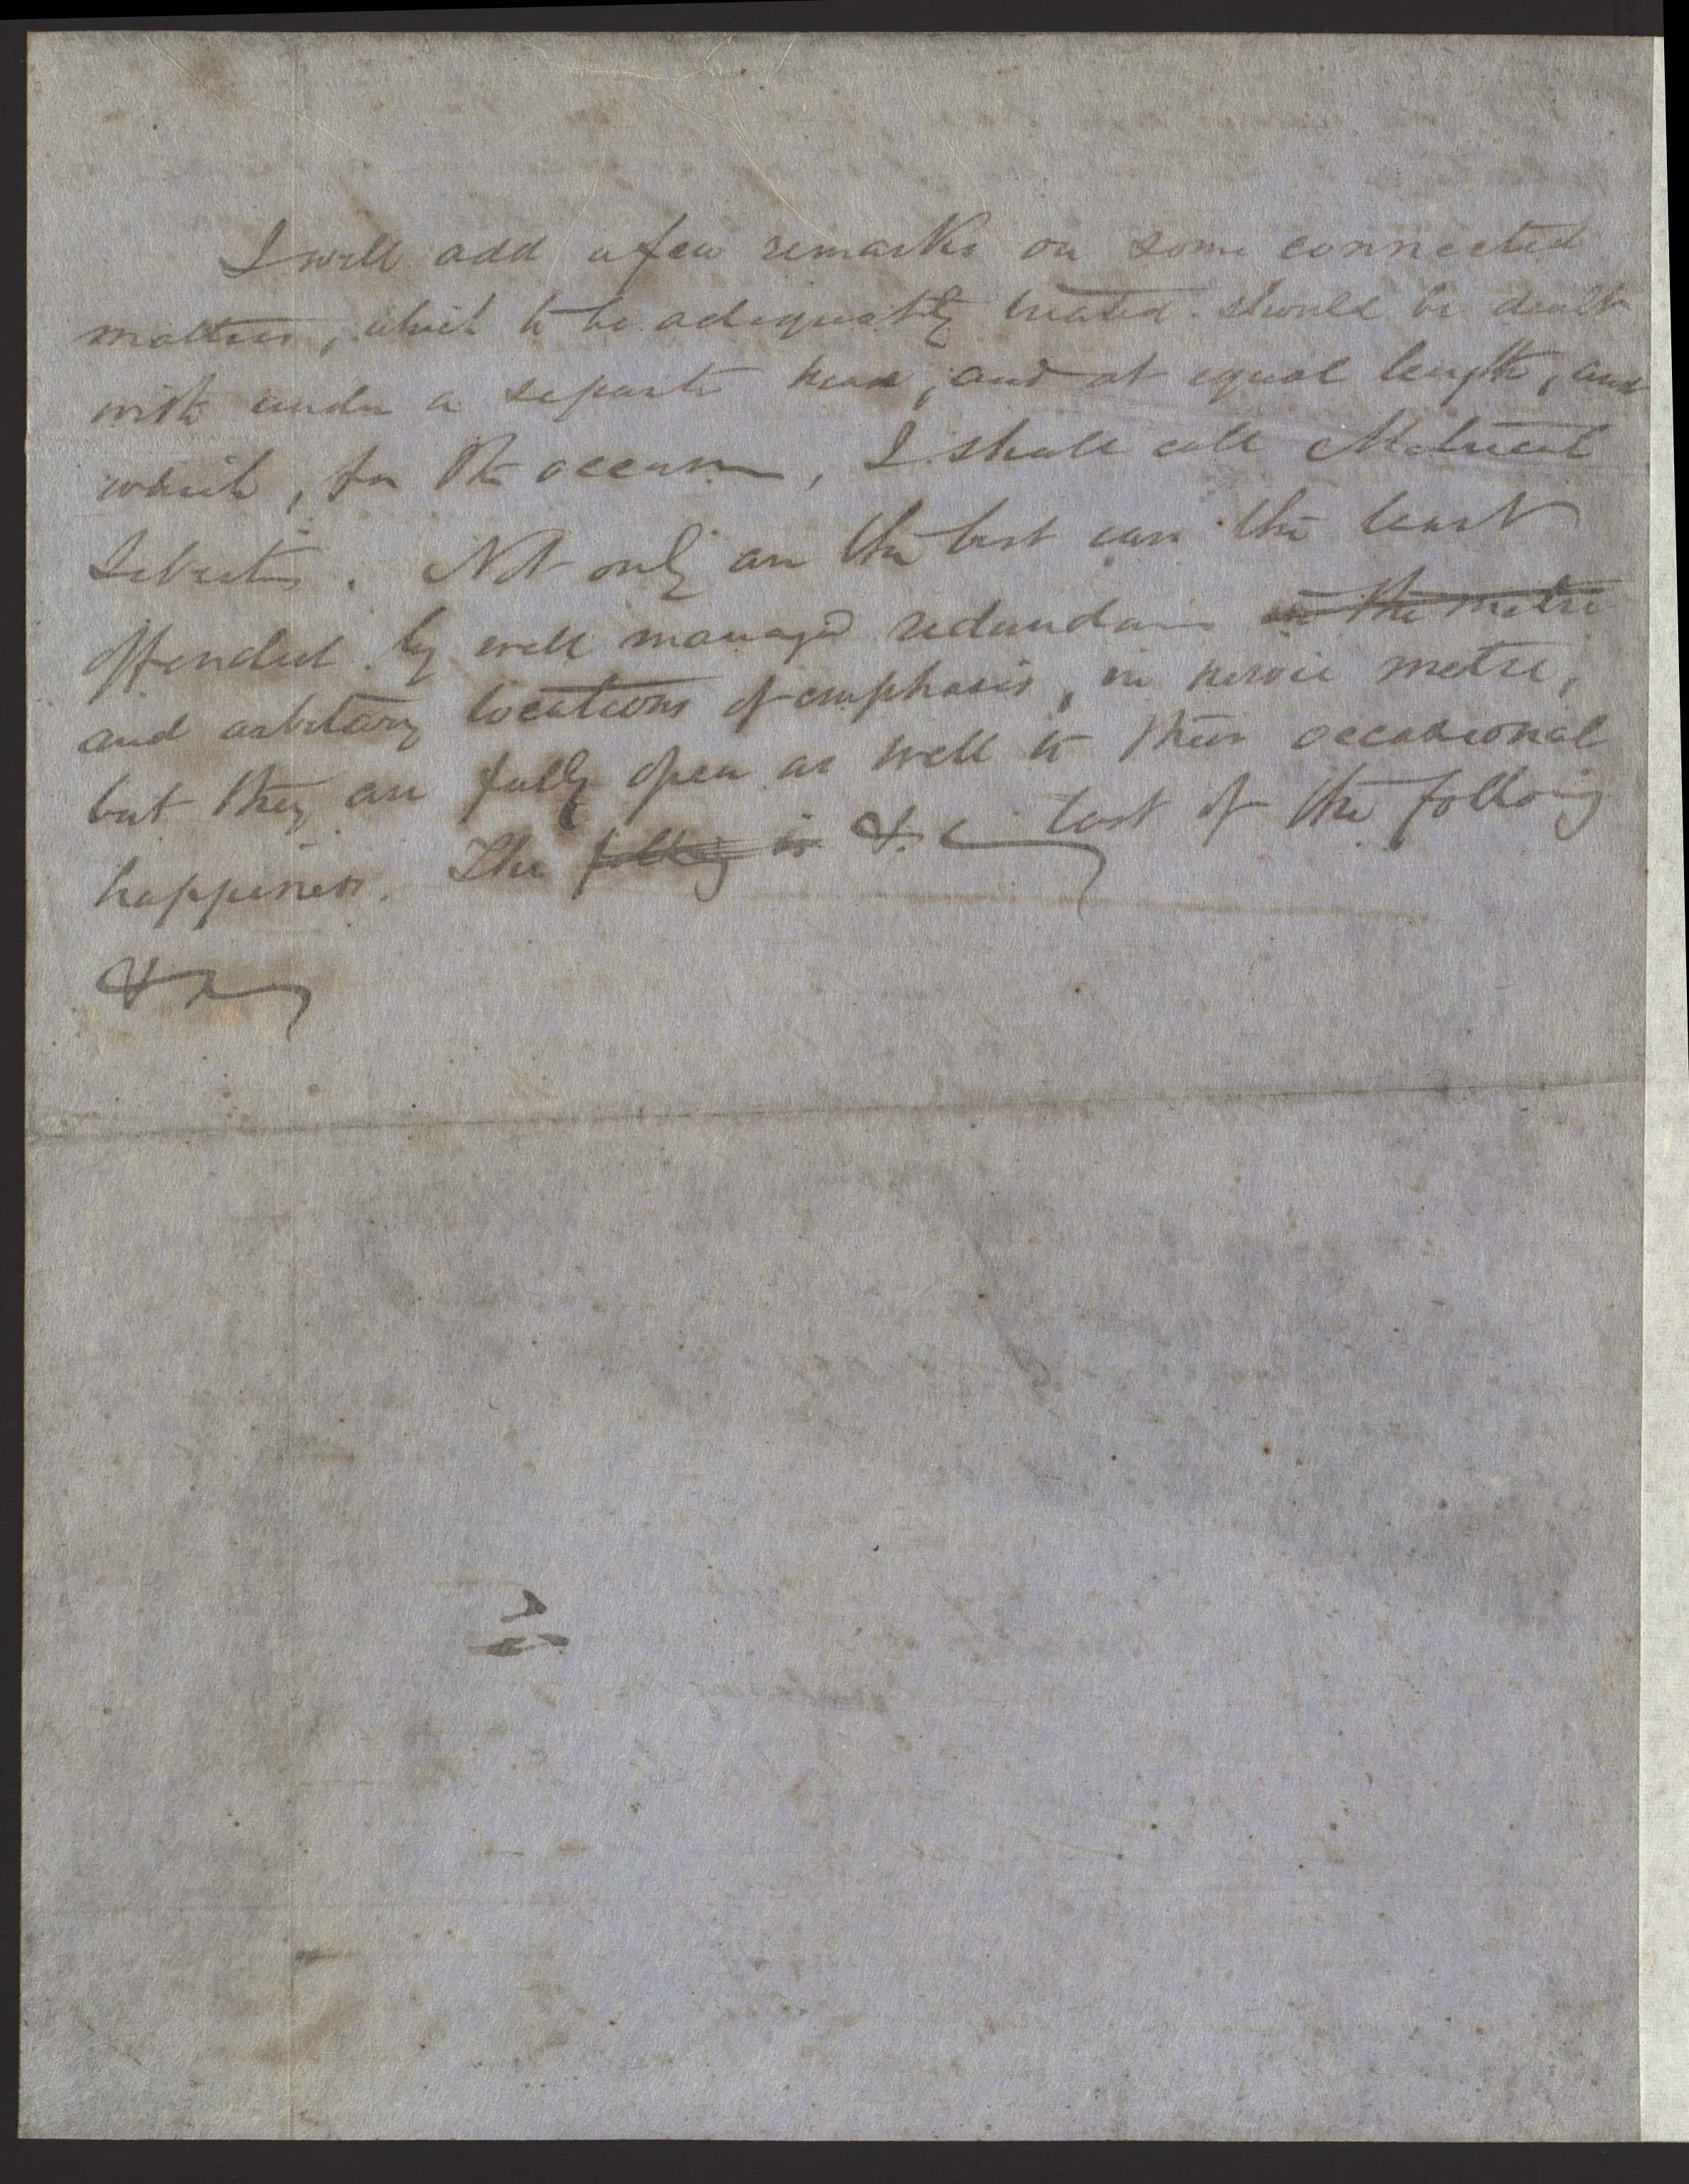 I will add a few remarks on some connected
matters, which to be adequately treated should be dealt
with under a separate head, and at equal length, and
which, for the occasion, I shall call Metrical
Not only are the best ears the least
offended by well managed in the metre
and arbitrary locations of emphasis, in heroic metre,
but they are fully open as well to their occasional
happiness. The follog is &c last of the following
&c